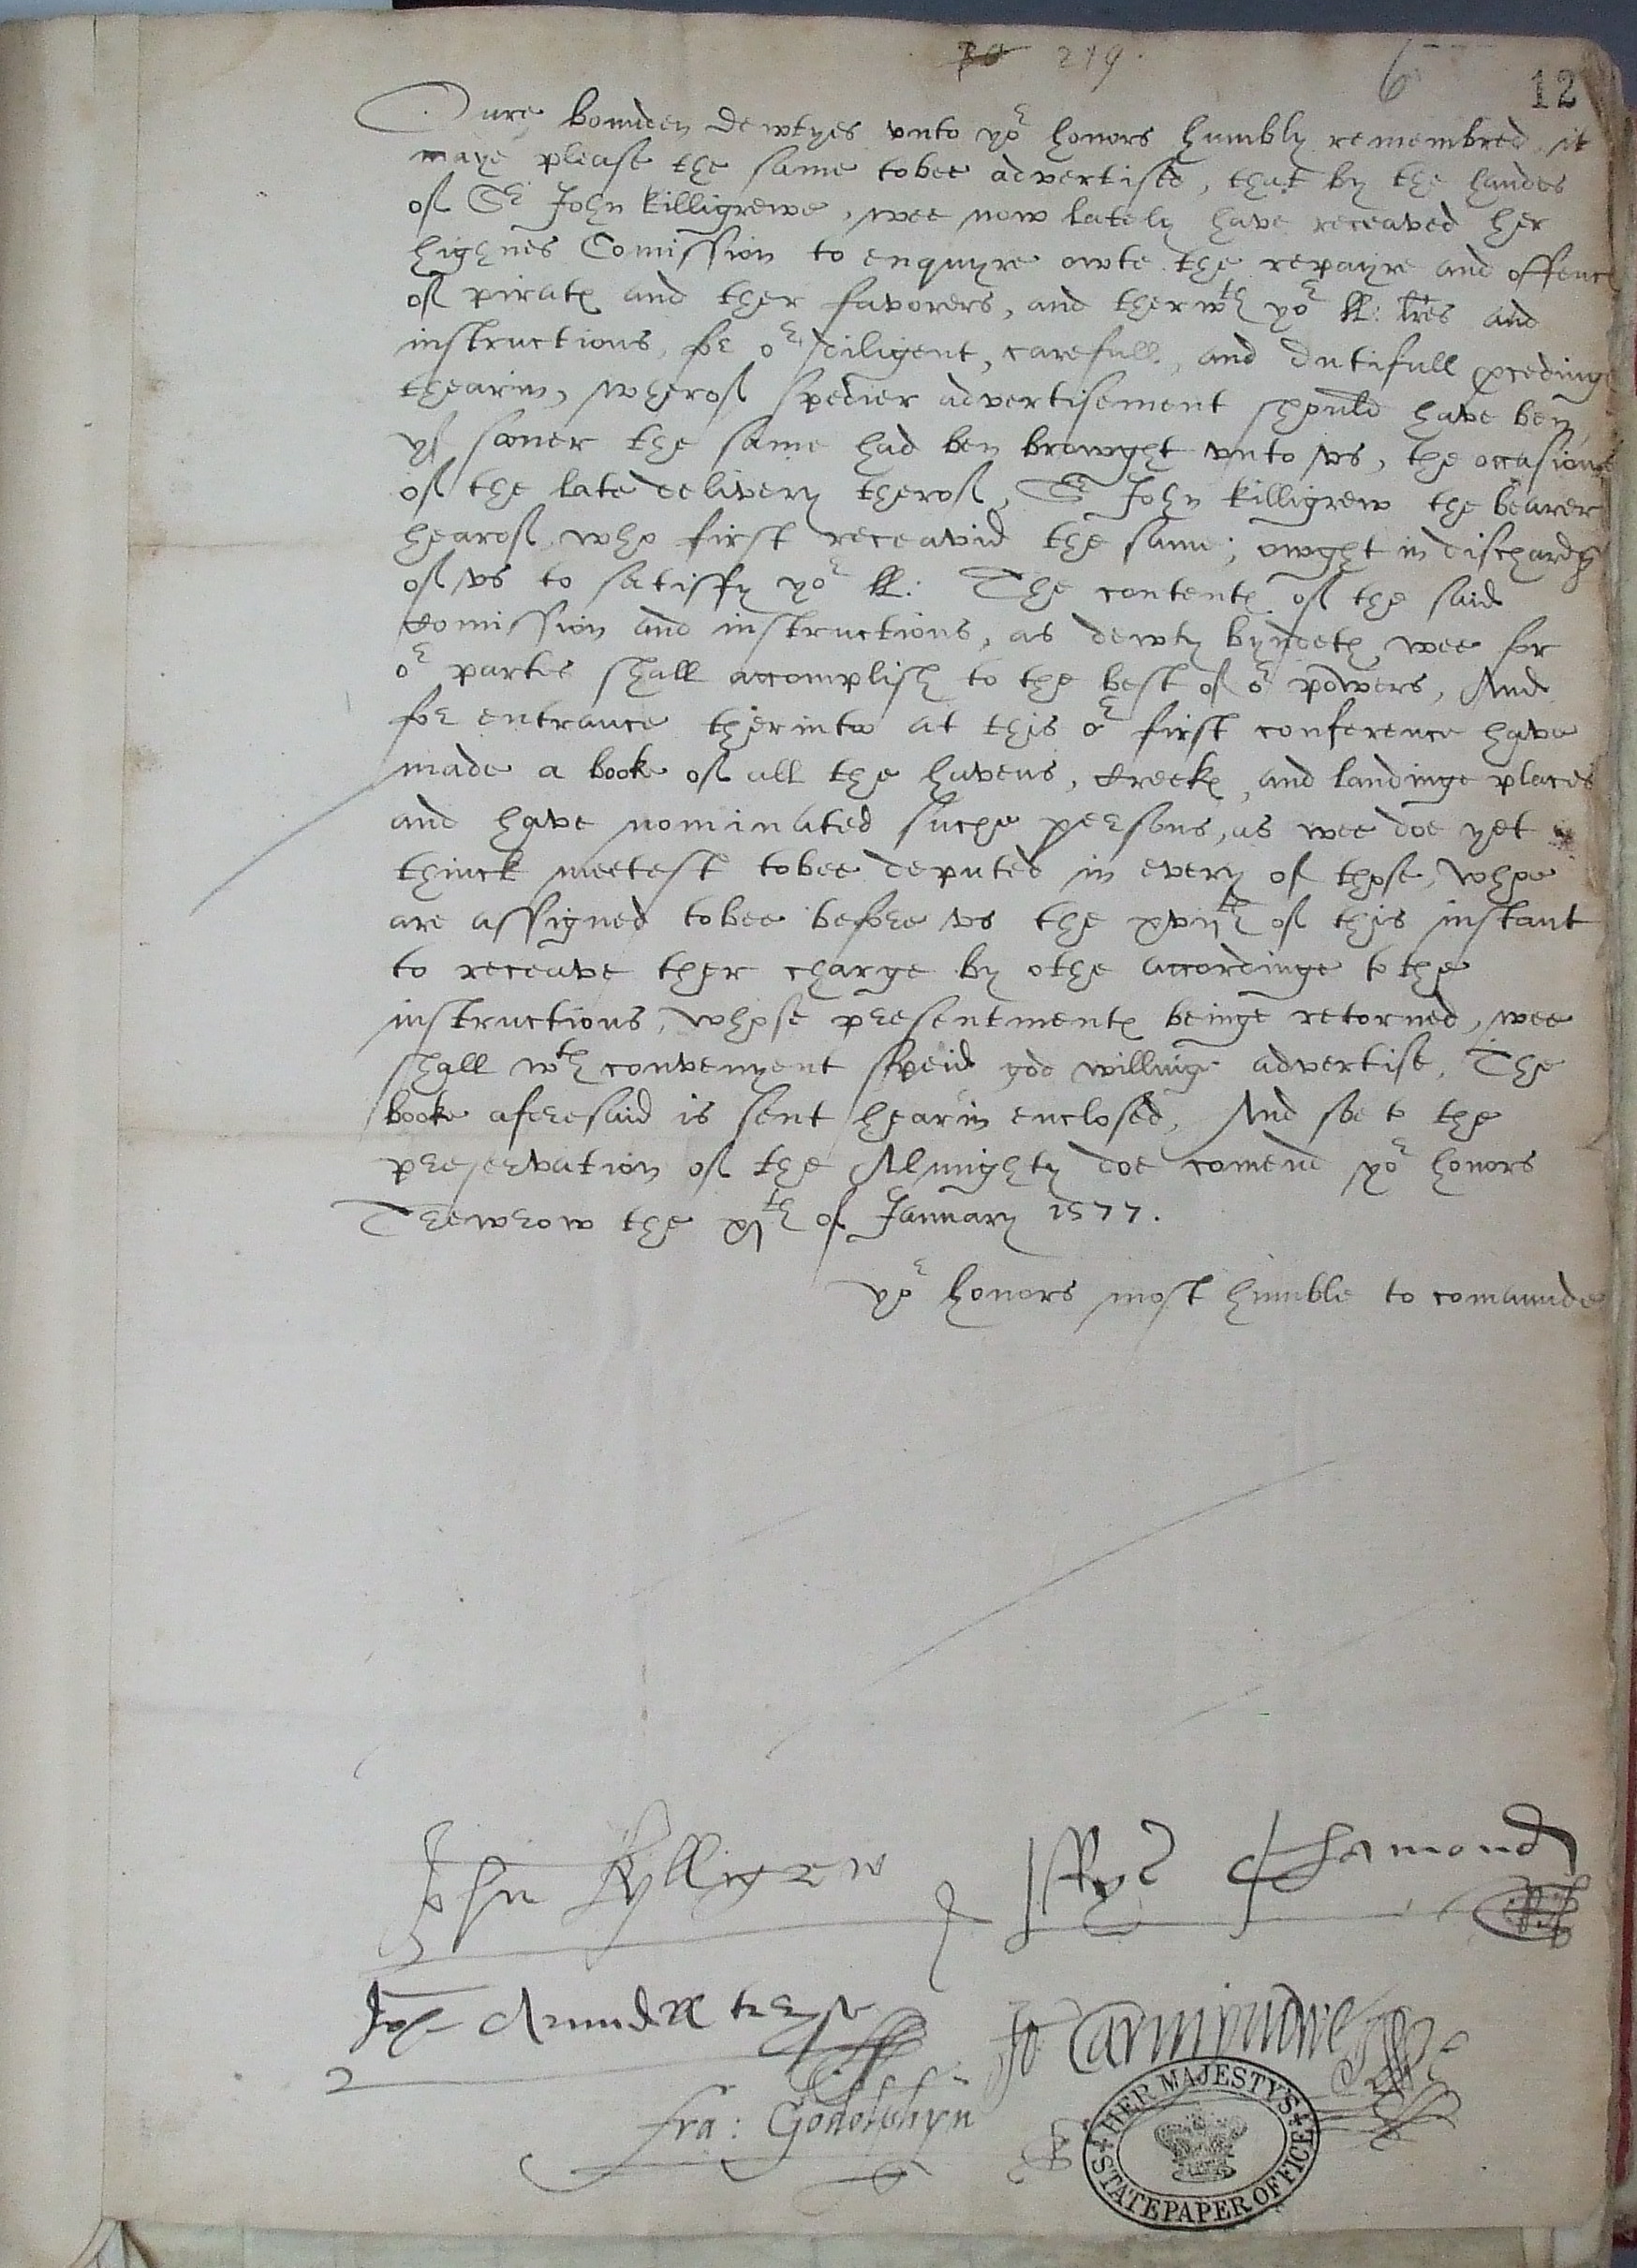 30 219. 6 12
Oure bounden dewtyes vnto yor honors humbly remembred, it
maye please the same tobee advertised, that by the handes
of Sr John Killigrewe, wee now lately have receaved her
highnes Comission to enquyre owte the repayre and offenc
of pirates and ther favorers, and therwth yor ll: lres and
instructions, for or diligent, carefull, and dutifull pcedinge
thearin, wherof spedier advertisement should have ben,
yf soner the same had ben browght vnto vs, the occasions
of the late delivery therof, Sr John Killigrew the bearer
hearof, who first receavid the same, owght in dischardg
of vs to satisfy yor ll: The contentes of the said
Comission and instructions, as dewty byndeth, wee for
or partes shall accomplish to the best of or powers, And
for entrance therinto at this or first conference have
made a booke of all the havens, Creekes, and landinge places
and have nominated suche persons, as wee doe yet
thinck meetest tobee deputed in every of those, whoe
are assigned tobee before vs the xviith of this instant
to receave ther charge by othe accordinge to the
instructions, whose presentmentes beinge retorned, wee
shall wth convenyent speid god willinge advertise, The
booke aforesaid is sent hearin enclosed, And soe to the
preservation of the Almighty doe comend yor honors
Trewrow the xjth of January 1577.
yor honors most humble to comaunde
John Kylligrew Rychard Chamond
John Arundell treryse Jo Carminowe
Fra: Godolphyn
HER MAJESTY'S STATE PAPER OFFICE